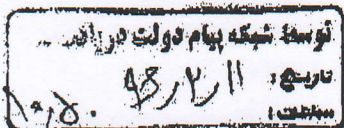 توسط شبکه پیام دولت در
تاریخ: ۹۳/۲/۱۱
ساعت: ۱۰/۵۰